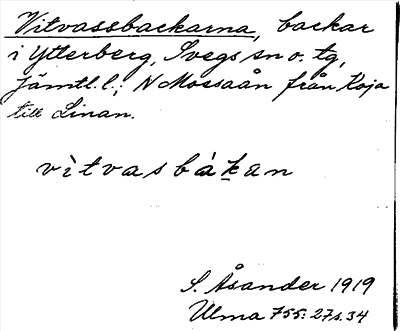 Vitvassbackarna, backar
i Ytterberg, Svegs sn o. tg,
Jämtl. l.; N Mossaån från Koja
till Linan.
vìtvasbákan
S. Åsander 1919
Ulma 755:27 s. 34